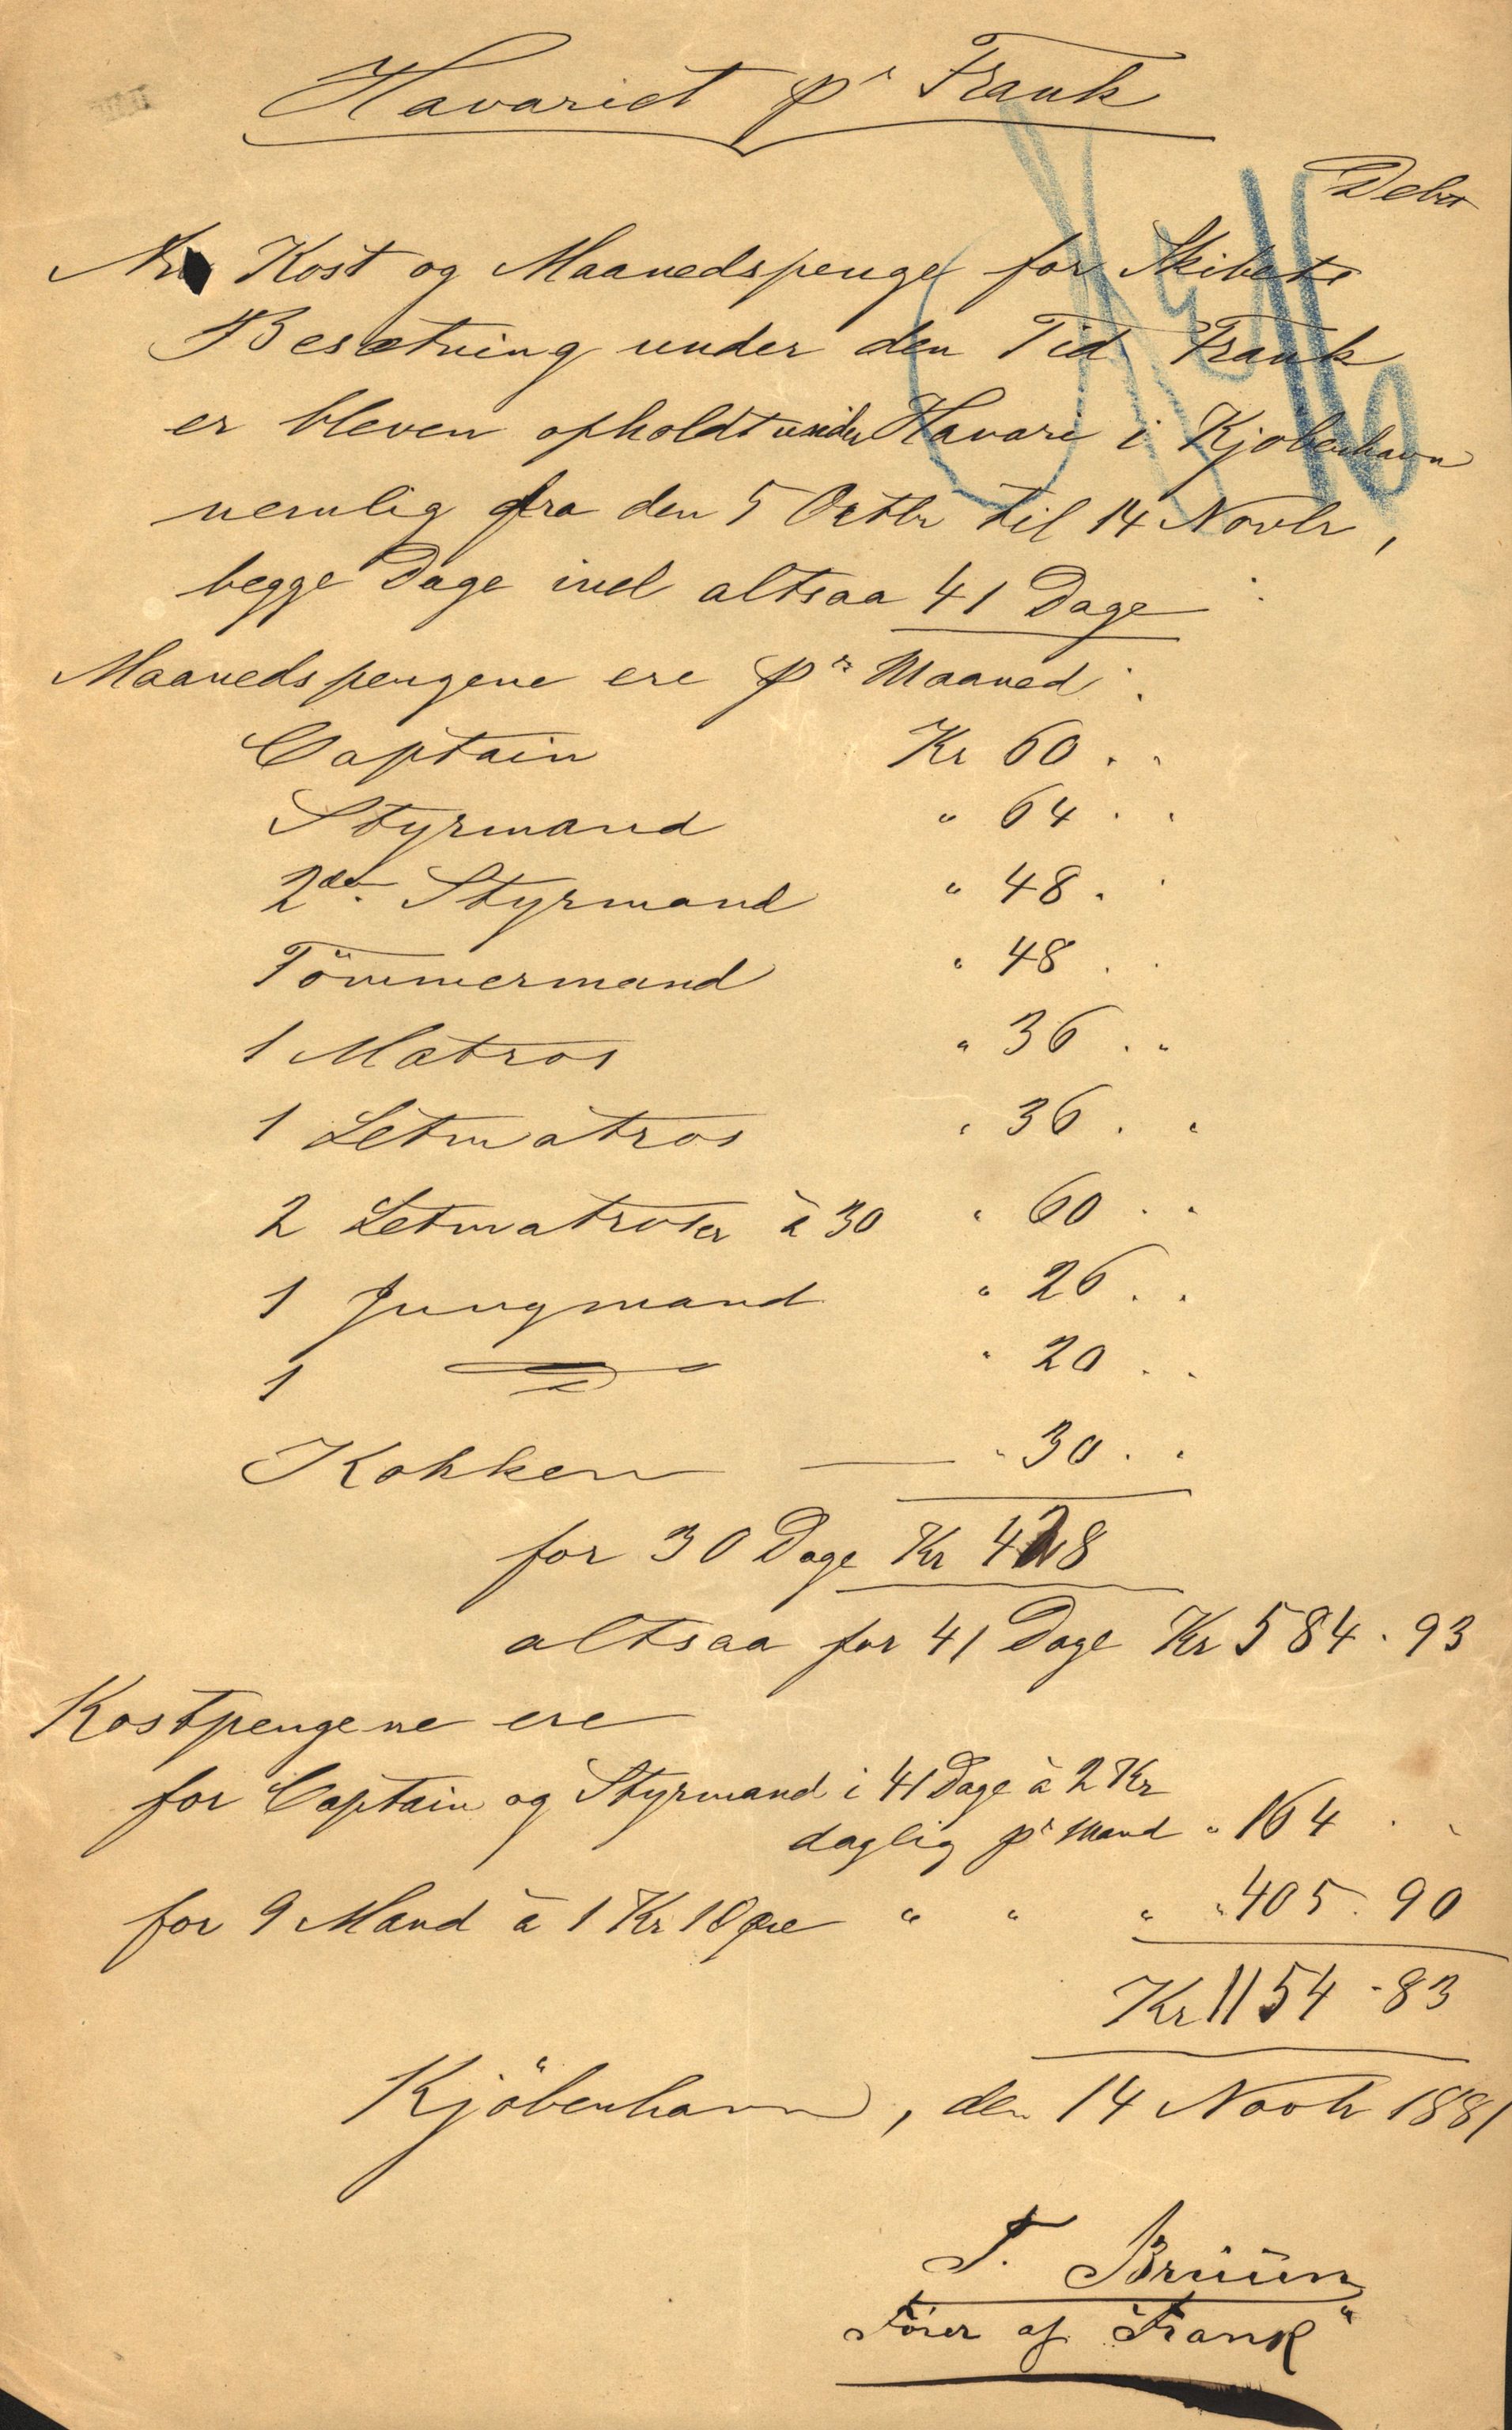 Havariet pr Frank
Debet
Kost og Maanedspenge for Skibets
Besætning under den Tid Frank
er bleven opholdt under Havari i Kjobenhavn
nemlig fra den 5 Octbr til 14 Novbr,
begge Dage incl altsaa 41 Dage
Maanedspengene ere pr Maaned:
Captain Kr 60 . "
Styrmand " 64 . "
2den Styrmand " 48 . "
Tömmermand " 48 . .
1 Matros " 36 . "
1 Letmatros " 36 . "
2 Letmatroser à 30 " 60 . .
1 Jungmand " 26 . .
1 — " — " 20 . .
Kokken — " 30 . .
for 30 Dage Kr 428
altsaa for 41 Dage Kr 584 . 93
Kostpengene ere
for Captain og Styrmand i 41 Dage à 2 Kr
daglig pr Mand " 164 . "
for 9 Mand à 1 Kr 10 Øre " " " " 405 . 90
Kr 1154 - 83
Kjöbenhavn, den 14 Novbr 1881
T. Brüün
Förer af "Frank"